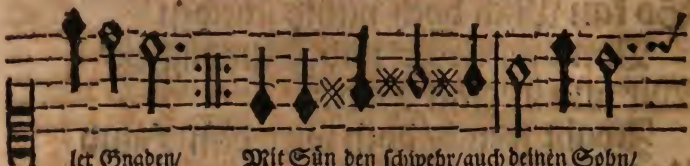 ler Gnaden/ Mit Sün den schwehr/auch deinen Sohn/